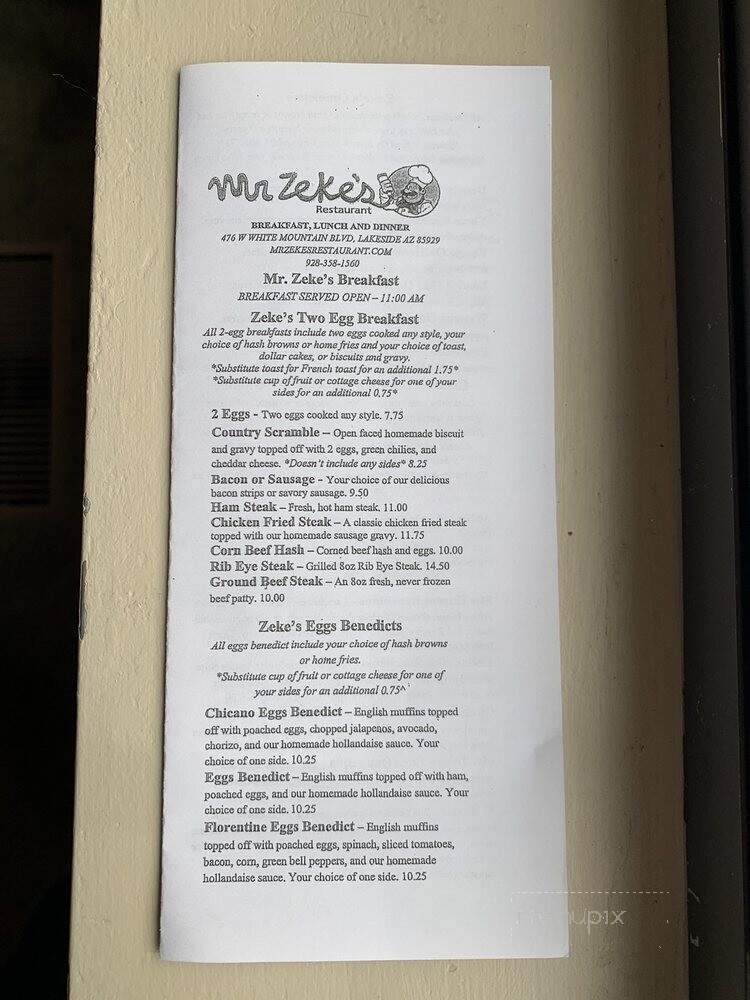 Mr Zeke's
Restaurant
BREAKFAST, LUNCH AND DINNER
476 W WHITE MOUNTAIN BLVD, LAKESIDE AZ 85929
MRZEKESRESTAURANT.COM
928-358-1560
Mr. Zeke's Breakfast
BREAKFAST SERVED OPEN – 11:00 AM
Zeke's Two Egg Breakfast
All 2-egg breakfasts include two eggs cooked any style, your
choice of hash browns or home fries and your choice of toast,
dollar cakes, or biscuits and gravy.
*Substitute toast for French toast for an additional 1.75*
*Substitute cup of fruit or cottage cheese for one of your
sides for an additional 0.75*
2 Eggs - Two eggs cooked any style. 7.75
Country Scramble – Open faced homemade biscuit
and gravy topped off with 2 eggs, green chilies, and
cheddar cheese. *Doesn't include any sides* 8.25
Bacon or Sausage - Your choice of our delicious
bacon strips or savory sausage. 9.50
Ham Steak – Fresh, hot ham steak. 11.00
Chicken Fried Steak – A classic chicken fried steak
topped with our homemade sausage gravy. 11.75
Corn Beef Hash – Corned beef hash and eggs. 10.00
Rib Eye Steak – Grilled 8oz Rib Eye Steak. 14.50
Ground Beef Steak – An 8oz fresh, never frozen
beef patty. 10.00
Zeke's Eggs Benedicts
All eggs benedict include your choice of hash browns
or home fries.
*Substitute cup of fruit or cottage cheese for one of
your sides for an additional 0.75^
Chicano Eggs Benedict – English muffins topped
off with poached eggs, chopped jalapenos, avocado,
chorizo, and our homemade hollandaise sauce. Your
choice of one side. 10.25
Eggs Benedict – English muffins topped off with ham,
poached eggs, and our homemade hollandaise sauce. Your
choice of one side. 10.25
Florentine Eggs Benedict – English muffins
topped off with poached eggs, spinach, sliced tomatoes,
bacon, corn, green bell peppers, and our homemade
hollandaise sauce. Your choice of one side. 10.25